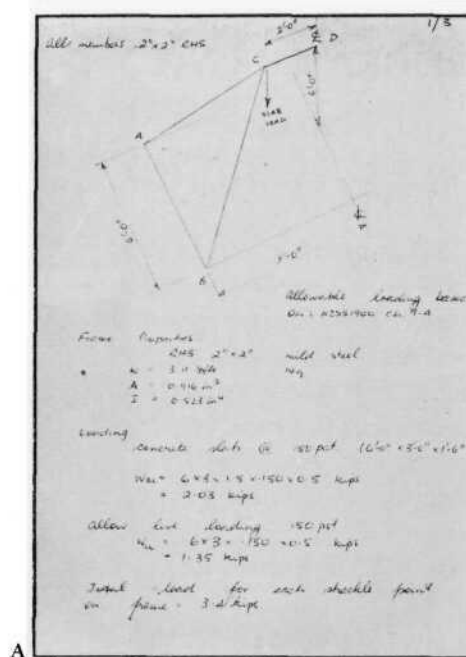 1/3
All members 2"x2" RHS
2'0"
D
C
SLAB
LOAD
A
B
Allowable loading based
on : NZSS1900
Frame Properties
RHS 2"x2" mild steel
w =
A = 0.916 in²
I = 0.523 in⁴
Loading
Concrete slabs @ 150 pcf
= 6 x 3 x 1.5 x .150 x 0.5 kips
= 2.03 kips
Allow live loading 150 psf
= 6 x 3 x .150 x 0.5 kips
= 1.35 kips
Total load for each shackle point
on frame = 3.4 kips
A